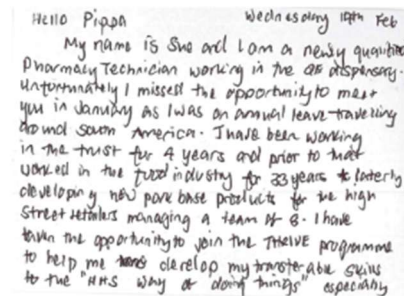 Hello Pippa Wednesday 19th Feb
My name is Sue and I am a newly qualified
Pharmacy Technician working in the dispensary.
Unfortunately I missed the opportunity to meet
you in January as I was on annual leave travelling
around South America. I have been working
in the trust for 4 years and prior to that
worked in the food industry for 33 years latterly
developing new pork base products for the high
street retailers managing a team of 8. I have
taken the opportunity to join the THRIVE programme
to help me develop my transferable skills
to the "NHS way of doing things" especially